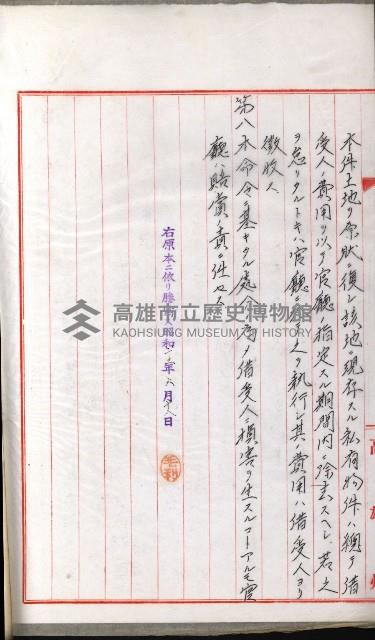 本件土地ヲ原狀ニ復シ該地ニ現存スル私有物件ハ總テ借
受人ノ費用ヲ以テ官廳ノ指定スル期間内ニ除去スヘシ若之
ヲ怠リタルトキハ官廳ニ於テ之ヲ執行シ其ノ費用ハ借受人ヨリ
徵收ス
第八 本命令ニ基キタル處分ノ為メ借受人ニ損害ヲ生スルコトアルモ官
廳ハ賠償ノ責ニ任セス
右原本ニ依リ謄寫ス昭和 年六月 日
高雄州
高雄市立歷史博物館
KAOHSIUNG MUSEUM OF HISTORY